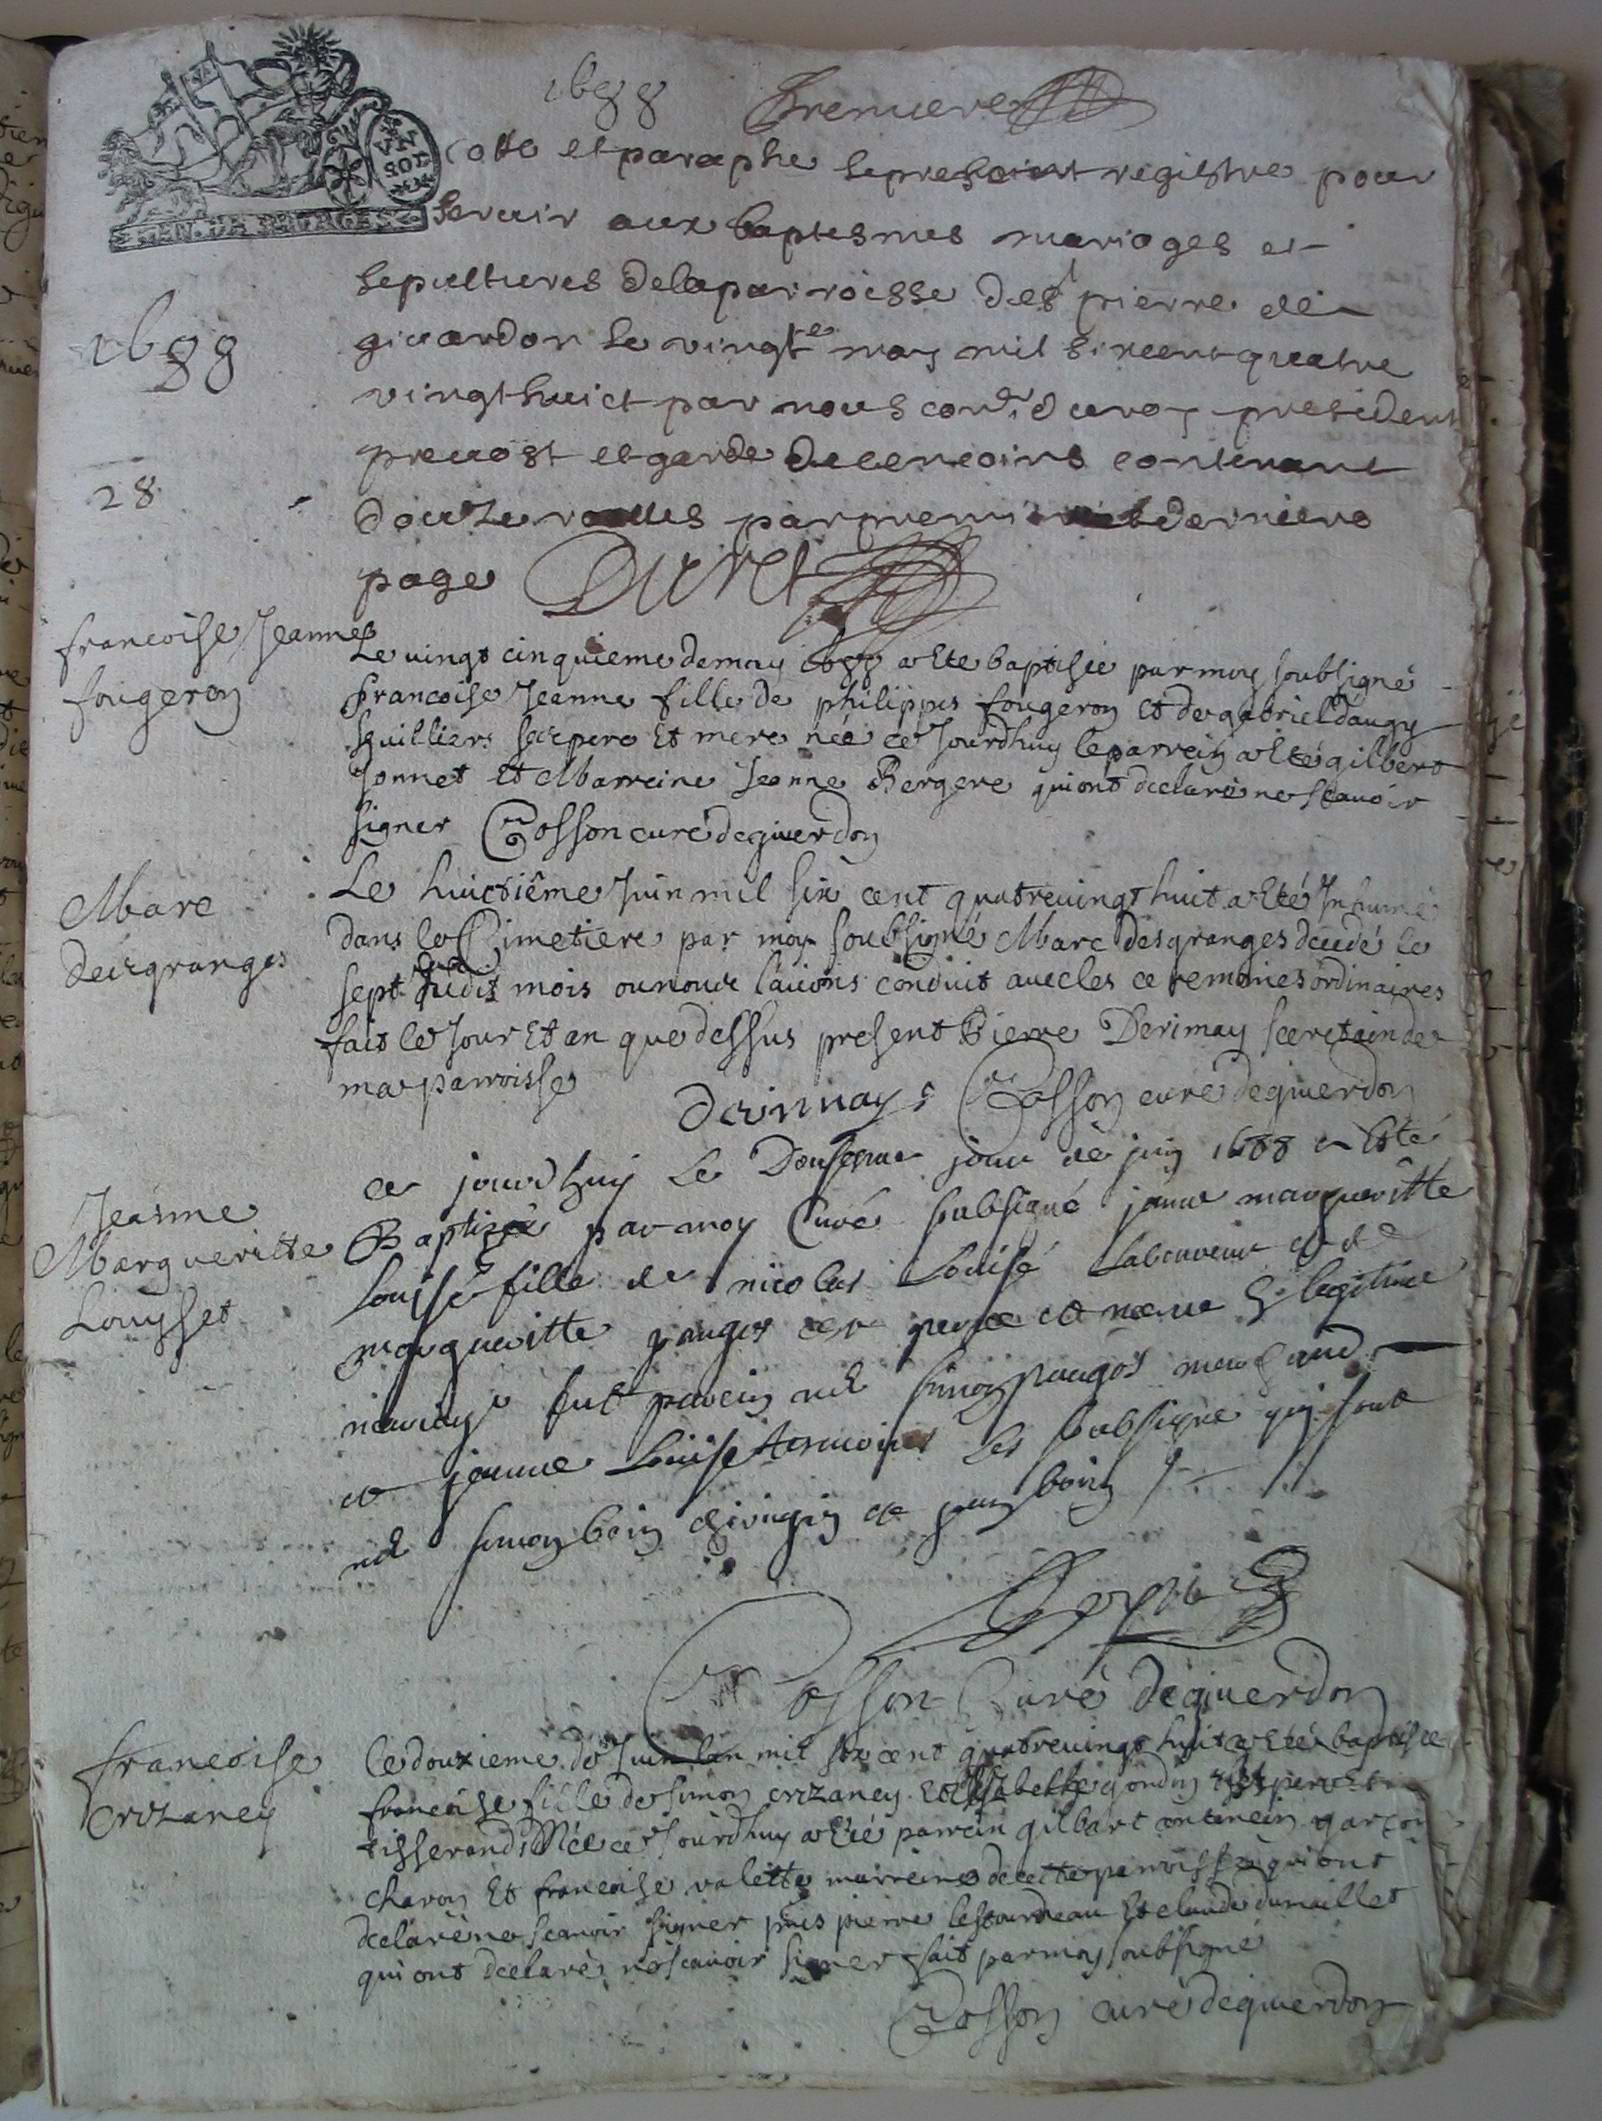 1688 Premiere
VN SOL
GEN. DE BOURGES
Cotte et paraphe le present registre pour
servir aux baptesmes mariages et
sepultures de la parroisse de st pierre de
giverdon le vingte may mil six cent quatre
1688
vingt huict par nous conr. du roy president
prevost et garde de cencoins contenant
28
douze roolles par premiere et derniere
page Duret
francoise Jeanne
fougeron
Le vingt cinquieme de may 1688 a esté baptisée par moy soubsigné
francoise Jeanne fille de philippes fougeron et de gabriel daugy
ses pere et mere née ce Jourdhuy le parrein a esté gilbert
Jonnet et Marreine Jeanne Bergere qui ont declaré ne scauoir
signer Cosson curé de giverdon
Marc
desgranges
Le huictiême Juin mil six cent quatre uingt huit a esté Inhumé
dans le Cimetiere par moy soubsigné Marc desgranges decedé le
sept du dit mois ou nous l'auons conduit auec les ceremonies ordinaires
fait le Jour Et an que dessus present Pierre Derimay secretain de
ma parroisse
Derimay Cosson curé de giverdon
Jeanne
Margueritte
Louysset
ce jourdhuy le Dousieme jour de juin 1688 a Esté
Baptizée par moy Curé subsigné janne margueritte
Louisé fille de nicolas Louisé Laboureur et de
margueritte paugos ces pere et mere de legitime
mariage fut parein me simon paugos marchand
et jeanne Louise tesmoins les subsigne qui sont
me simon boin chirugin et jean boin
Cosson Curé de giverdon
francoise
crozancy
Le douzieme de Juin lan mil six cent quatre uingt huit a esté baptisée
francoise fille de simon crozancy Et Elisabethe gondin ses pere Et
tisserands Née ce Jourdhuy a esté parrein gilbart antenein garcon
charon Et francoise valette marreine de cette parroisse qui ont
declaré ne scauoir signer pns pierre lestourneau Et claude dumaillet
qui ont declarés ne scauoir signer fait par moy soubsigné
Cosson curé de giverdon